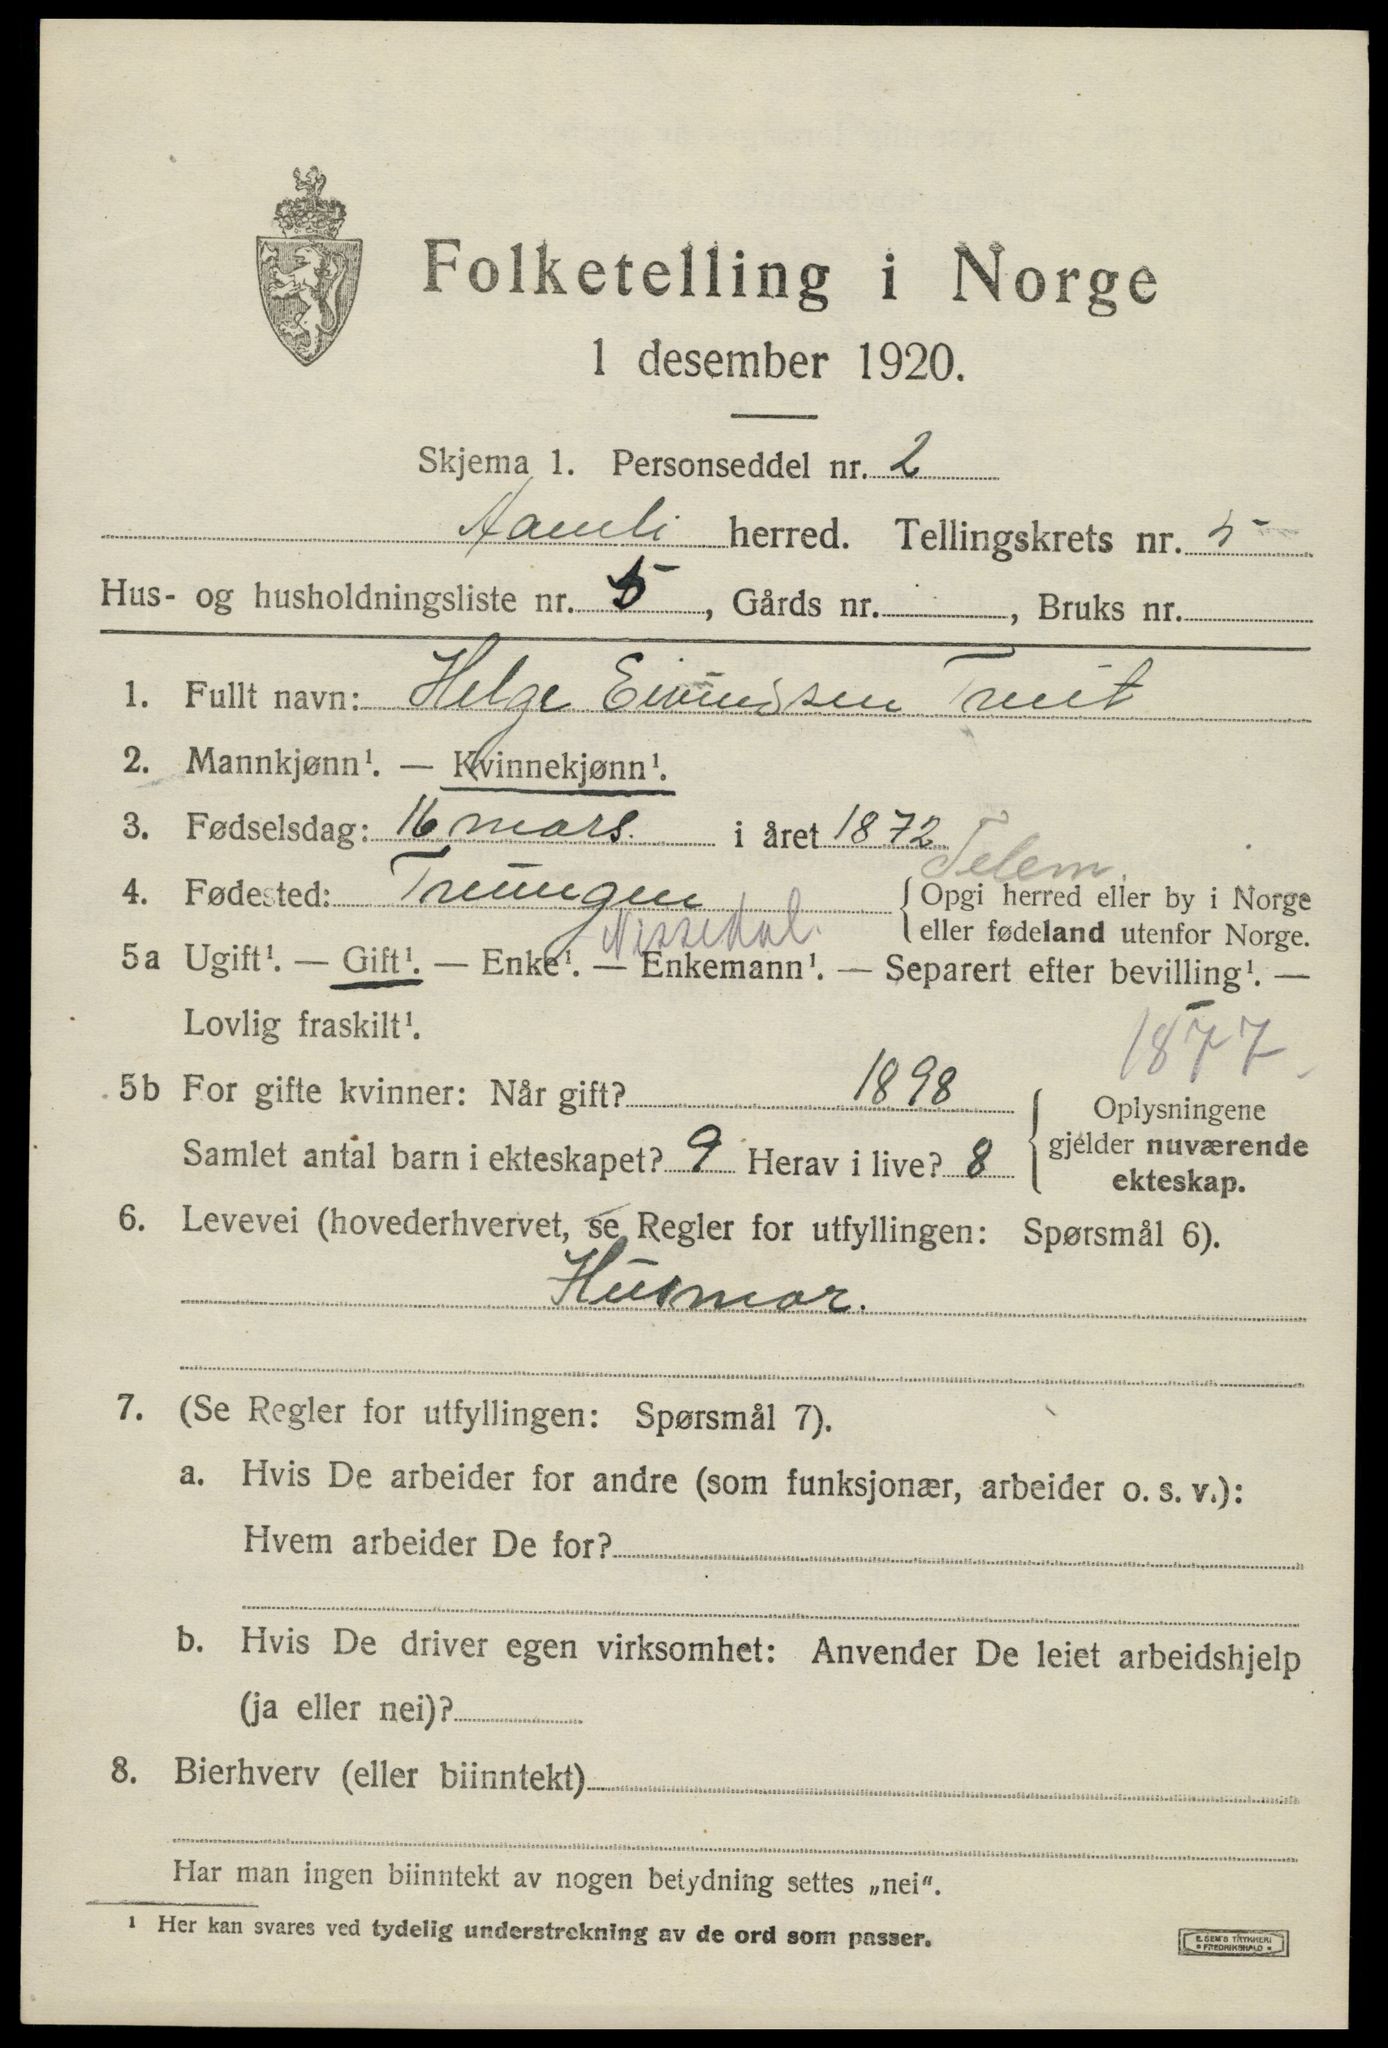 Folketelling i Norge
1 desember 1920.
Skjema 1. Personseddel nr. 2
Aamli herred. Tellingskrets nr. 5
Hus- og husholdningsliste nr. 5, Gårds nr. , Bruks nr.
1. Fullt navn: Helge Eivindsen Treit
2. Mannkjønn¹. — Kvinnekjønn¹.
3. Fødselsdag: 16 mars. i året 1872
Telem.
4. Fødested: Treungen { Opgi herred eller by i Norge
Nissedal. eller fødeland utenfor Norge.
5a Ugift¹. — Gift¹. — Enke¹. — Enkemann¹. — Separert efter bevilling¹. —
Lovlig fraskilt¹.
1877
5b For gifte kvinner: Når gift? 1898 { Oplysningene
Samlet antal barn i ekteskapet? 9 Herav i live? 8 gjelder nuværende
ekteskap.
6. Levevei (hovederhvervet, se Regler for utfyllingen: Spørsmål 6).
Husmor.
7. (Se Regler for utfyllingen: Spørsmål 7).
a. Hvis De arbeider for andre (som funksjonær, arbeider o. s. v.):
Hvem arbeider De for?
b. Hvis De driver egen virksomhet: Anvender De leiet arbeidshjelp
(ja eller nei)?
8. Bierhverv (eller biinntekt)
Har man ingen biinntekt av nogen betydning settes „nei".
¹ Her kan svares ved tydelig understrekning av de ord som passer.
E. SEM'S TRYKKERI
FREDRIKSHALD